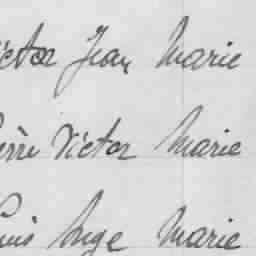 ictor Jean Marie
ierre Victor Marie
ouis Ange Marie